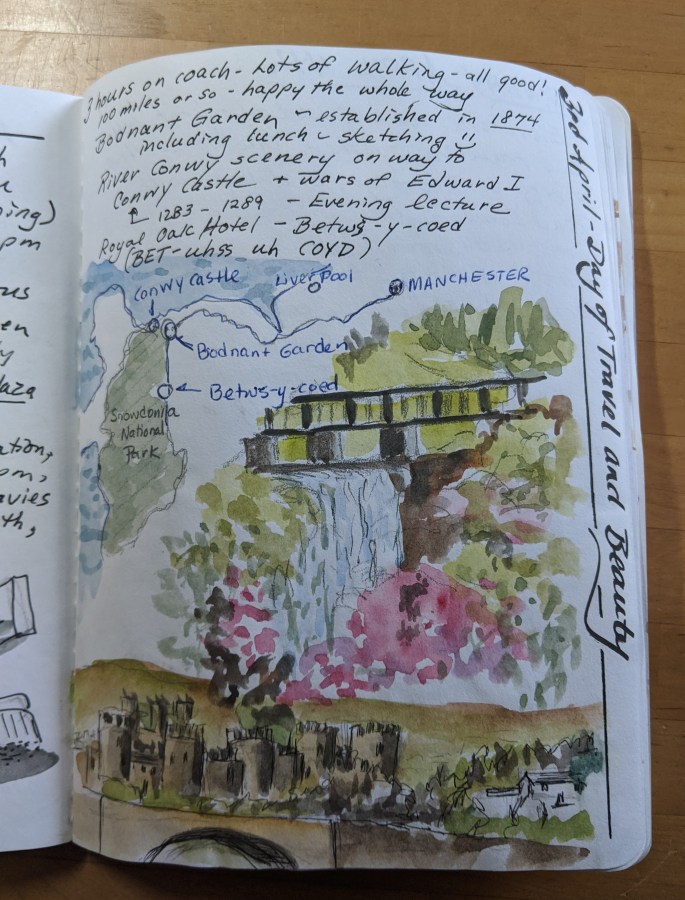 3 hours on coach - Lots of walking - all good!
100 miles or so - happy the whole way
Bodnant Garden - established in 1874
including lunch - sketching !!
River Conwy scenery on way to
Conwy Castle + wars of Edward I
1283 - 1289 - Evening lecture
Royal Oak Hotel - Betws-y-coed
(BET-uhss uh COYD)
Conwy Castle
Liverpool
MANCHESTER
Bodnant Garden
Betws-y-coed
Snowdonia
National
Park
April - Day of Travel and Beauty
pm
us
en
aza
ation,
pm,
avies
th,